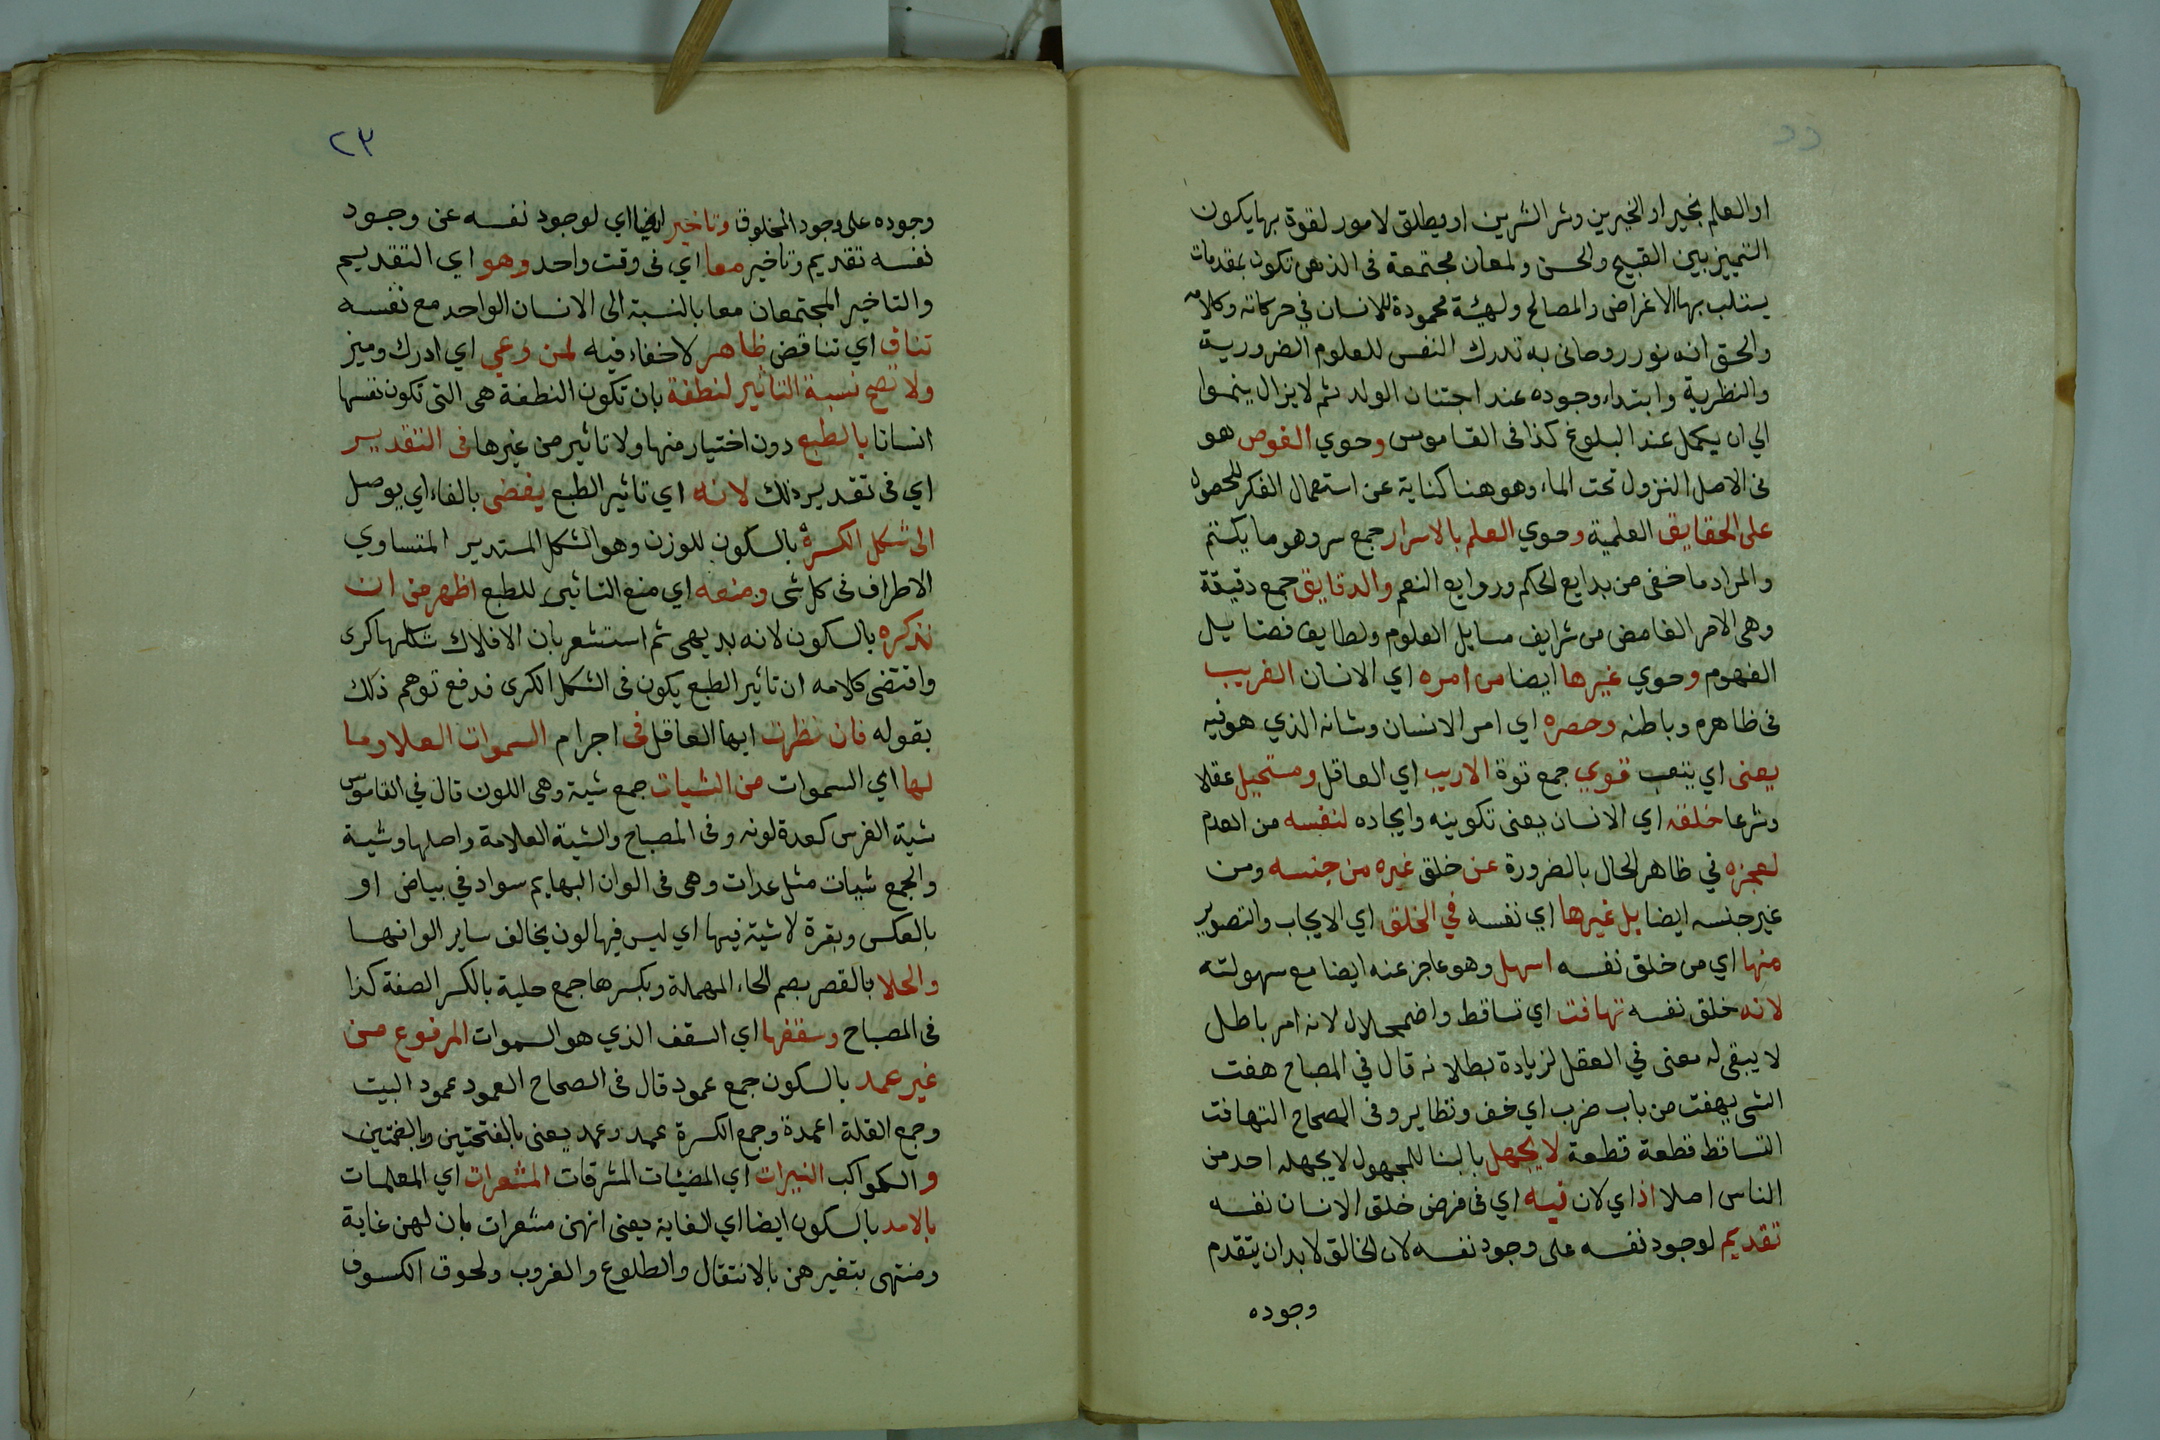 او العلم بخير او الخيرين وشر الشرين او يطلق لامور لقوة بها يكون
التمييز بين القبيح والحسن ولمعان مجتمعة فى الذهن تكون بمقدمات
يستلب بها الاغراض والمصالح ولهيئة محمودة للانسان في حركاته وكلامه
والحق انه نور روحانى به تدرك النفس للعلوم الضرورية
والنظرية وابتداء وجوده عند اجتنان الولد ثم لا يزال ينموا
الي ان يكمل عند البلوغ كذا فى القاموس وحوي الغوص هو
فى الاصل النزول تحت الماء وهو هنا كناية عن استعمال الفكر للحصول
على الحقايق العلمية وحوي العلم بالاسرار جمع سر وهو ما يكتم
والمراد ما خفى من بدايع الحكم وروايع النعم والدقايق جمع دقيقة
وهى الامر الغامض من شرايف مسايل العلوم ولطايف فضايل
الفهوم وحوي غيرها ايضا من امره اي الانسان الغريب
فى ظاهره وباطنه وحصره اي امر الانسان وشانه الذي هو فيه
يعنى اي يتعب قوي جمع قوة الاريب اي العاقل ومستحيل عقلا
وشرعا خلقه اي الانسان يعنى تكوينه وايجاده لنفسه من العدم
لعجزه في ظاهر الحال بالضرورة عن خلق غيره من جنسه ومن
غير جنسه ايضا بل غيرها اي نفسه في الخلق اي الايجاب والتصوير
منها اي من خلق نفسه اسهل وهو عاجز عنه ايضا مع سهولته
لانه خلق نفسه تهافت اي تساقط واضمحلال لانه امر باطل
لا يبقى له معنى في العقل لزيادة بطلانه قال في المصباح هفت
الشى يهفت من باب ضرب اي خف وتطاير وفى الصحاح التهافت
التساقط قطعة قطعة لا يجهل بالبنا للمجهول لا يجهله احد من
الناس اصلا اذ اي لان فيه اي فى فرض خلق الانسان نفسه
تقديم لوجود نفسه على وجود نفسه لان الخالق لا بد ان يتقدم
وجوده
٢٣
وجوده على وجود المخلوق وتاخير ايضا اي لوجود نفسه عن وجود
نفسه تقديم وتاخير معا اي فى وقت واحد وهو اي التقديم
والتاخير المجتمعان معا بالنسبة الى الانسان الواحد مع نفسه
تناف اي تناقض ظاهر لا خفاء فيه لمن وعي اي ادرك وميز
ولا تصح نسبة التاثير لنطفة بان تكون النطفة هى التى تكون نفسها
انسانا بالطبع دون اختيار منها ولا تاثير من غيرها فى التقدير
اي فى تقدير ذلك لانه اي تاثير الطبع يفضى بالفاء اي يوصل
الى شكل الكرة بالسكون للوزن وهو الشكل المستدير المتساوي
الاطراف فى كل شى ومنعه اي منع التاثير للطبع اظهر من ان
نذكره بالسكون لانه بديهى ثم استشعر بان الافلاك شكلها كرى
واقتضى كلامه ان تاثير الطبع يكون فى الشكل الكرى فدفع توهم ذلك
بقوله فان نظرت ايها العاقل فى اجرام السموات العلا وما
لها اي السموات من الشيات جمع شية وهى اللون قال في القاموس
شية الفرس كعدة لونه وفى المصباح والشية العلامة واصلها وشية
والجمع شيات مثل عدات وهى فى الوان البهايم سواد في بياض او
بالعكس وبقرة لا شية فيها اي ليس فيها لون يخالف ساير الوانها
والحلا بالقصر بضم الحاء المهملة وبكسرها جمع حلية بالكسر الصفة كذا
فى المصباح وسقفها اي السقف الذي هو السموات المرفوع من
غير عمد بالسكون جمع عمود قال فى الصحاح العمود عمود البيت
وجمع القلة اعمدة وجمع الكثرة عمد وعمد يعنى بالفتحتين وبالضمتين
والكواكب النيرات اي المضيئات المشرقات المشعرات اي المعلمات
بالامد بالسكون ايضا اي الغاية يعنى انهن مشعرات بان لهن غاية
ومنتهى بتغيرهن بالانتقال والطلوع والغروب ولحوق الكسوف